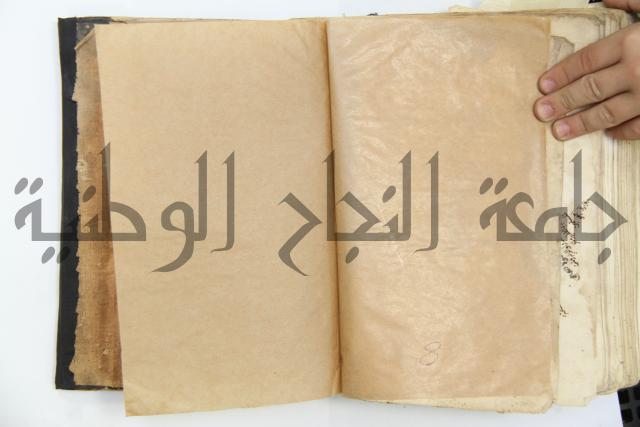 جامعة النجاح الوطنية
8